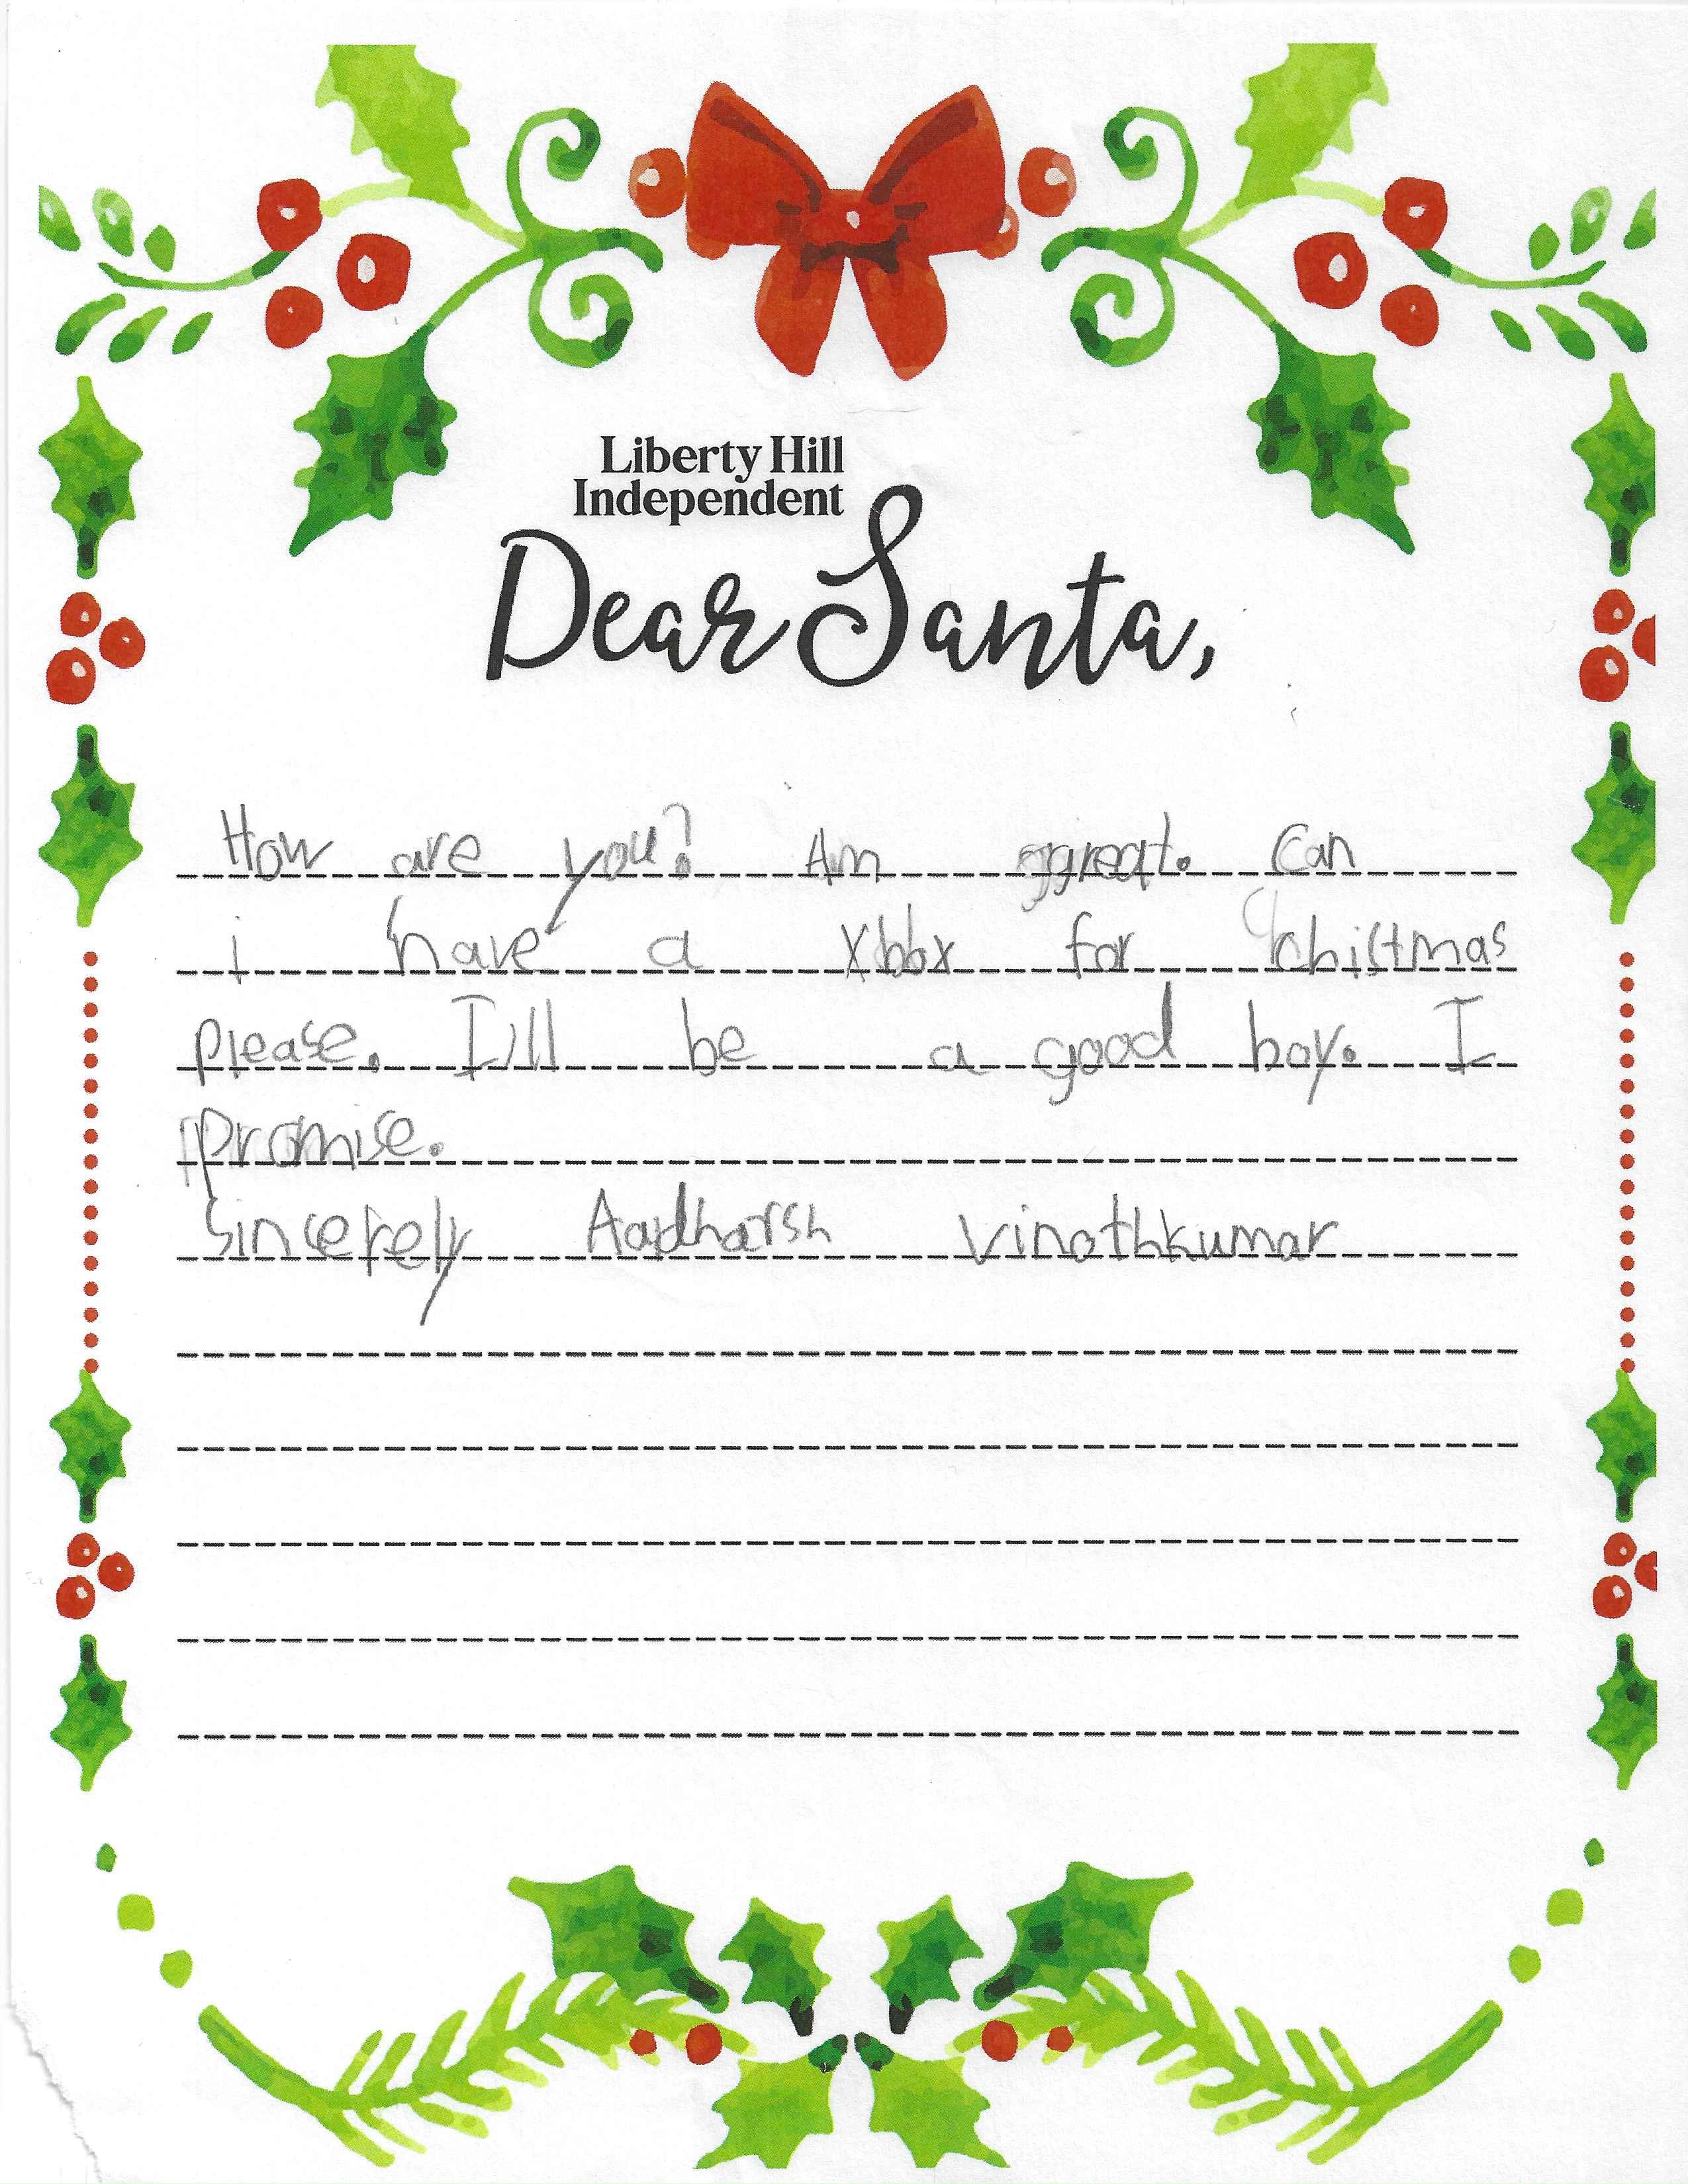 Liberty Hill
Independent
Dear Santa,
How are you? Am great. Can
i have a Xbox for chistmas
please. I'll be a good boy. I
promise.
Sincerely Aadharsh Vinothkumar